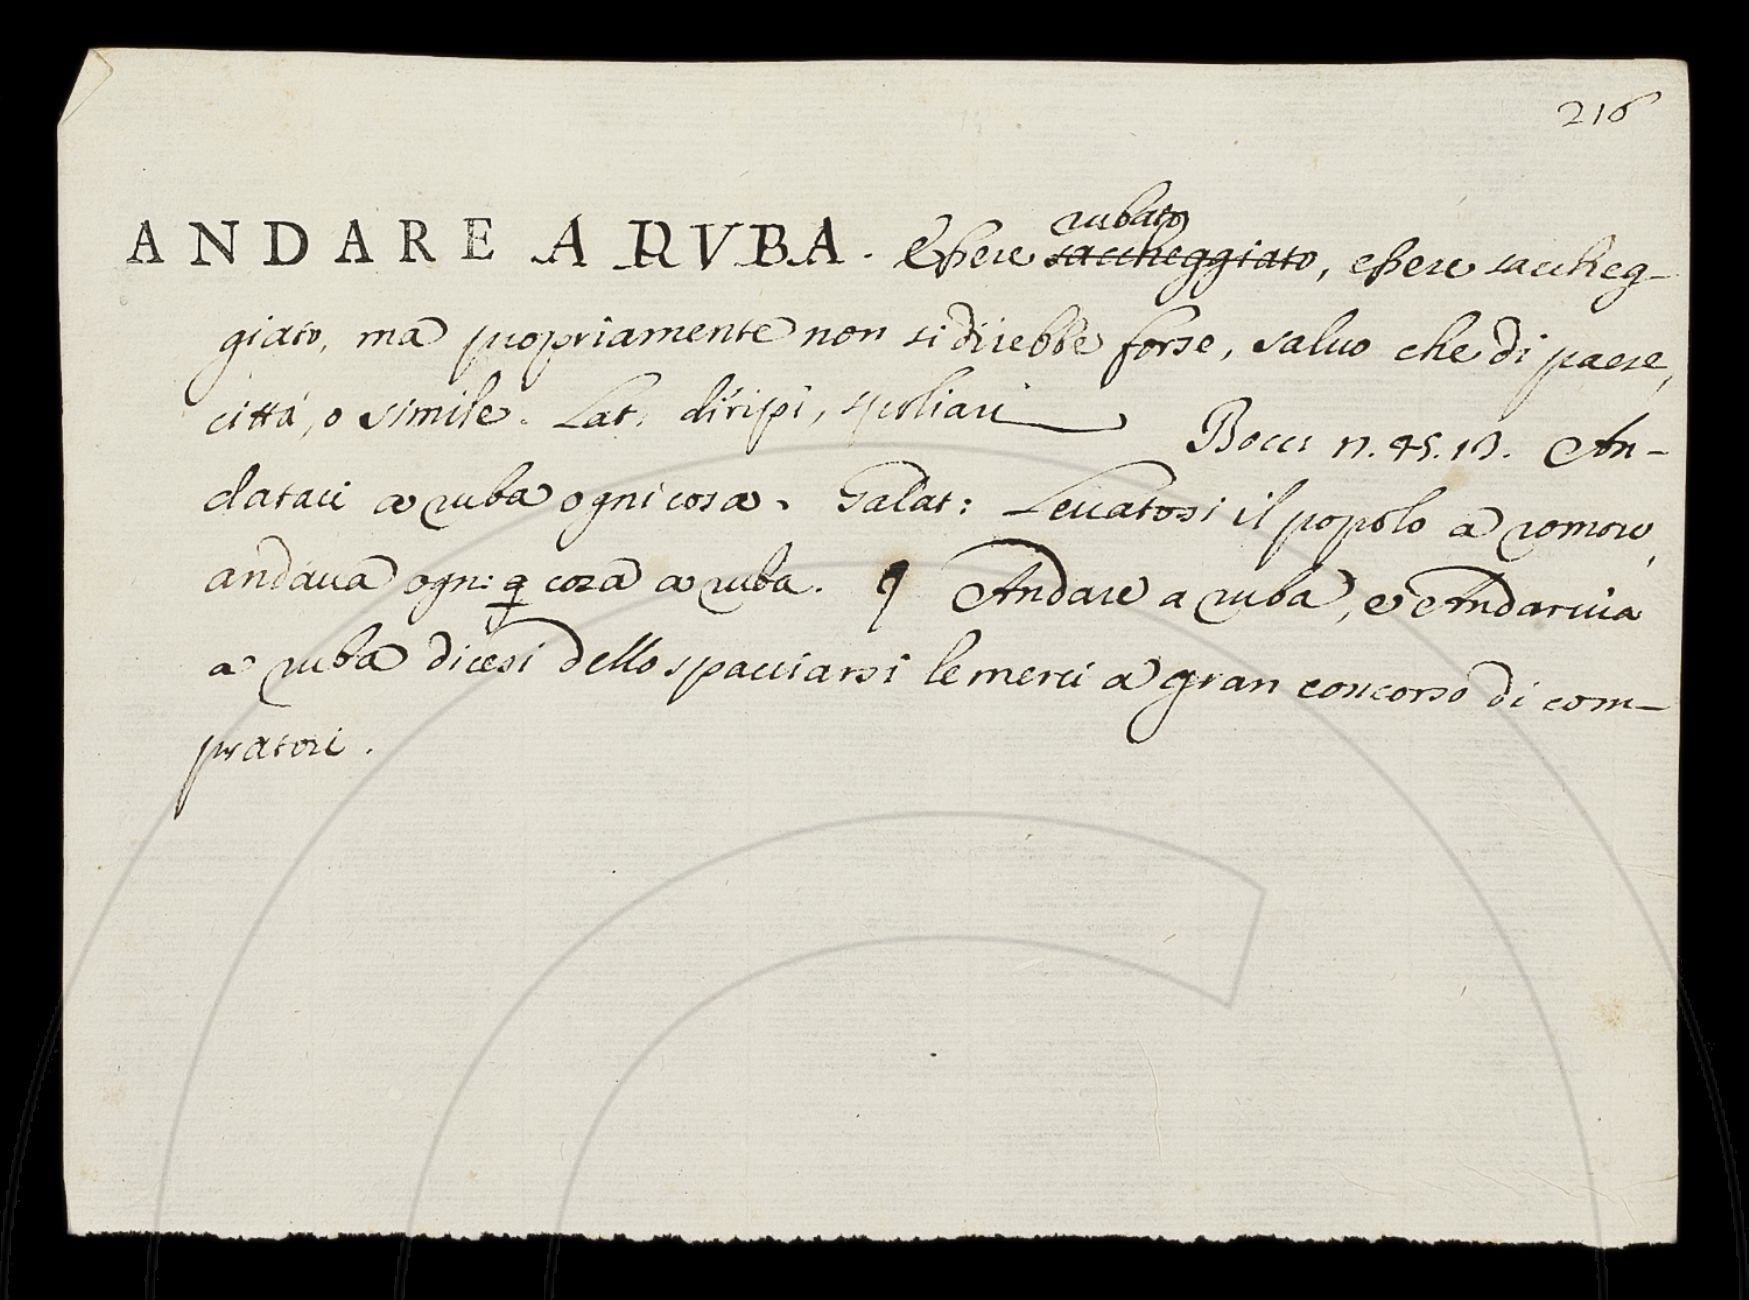 216
ANDARE A RVBA. Essere rubato saccheggiato, essere saccheg-
giato, ma propriamente non si direbbe forse, saluo che di paese,
città, o simile. Lat. diripi, spoliari Bocc: n. 45. 13. An-
dataci a ruba ogni cosa. Galat: Leuatosi il popolo a romore,
andaua ogni cosa a ruba. ¶ Andare a ruba, e Andaruia
a ruba dicesi dello spacciarsi le merci a gran concorso di com-
pratori.